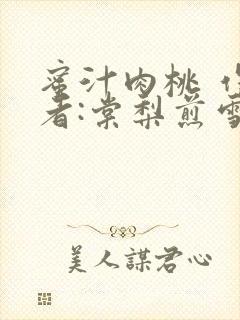 蜜汁肉桃 作
者:棠梨煎雪
美人謀君心